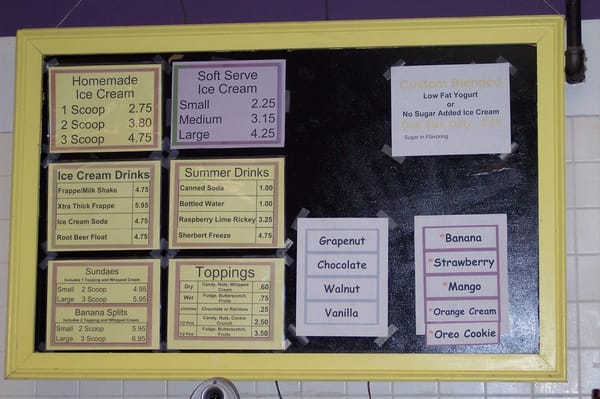 Homemade
Ice Cream
1 Scoop 2.75
2 Scoop 3.80
3 Scoop 4.75
Soft Serve
Ice Cream
Small 2.25
Medium 3.15
Large 4.25
Custom Blended
Low Fat Yogurt
or
No Sugar Added Ice Cream
One Size Only
*Sugar in Flavoring
Ice Cream Drinks
Frappe/Milk Shake 4.75
Xtra Thick Frappe 5.95
Ice Cream Soda 4.75
Root Beer Float 4.75
Summer Drinks
Canned Soda 1.00
Bottled Water 1.00
Raspberry Lime Rickey 3.25
Sherbert Freeze 4.75
Sundaes
Includes 1 Topping and Whipped Cream
Small 2 Scoop 4.95
Large 3 Scoop 5.95
Banana Splits
Includes 2 Topping and Whipped Cream
Small 2 Scoop 5.95
Large 3 Scoop 6.95
Toppings
Dry Candy, Nuts, Whipped Cream .60
Wet Fudge, Butterscotch, Fruits .75
Jimmies Chocolate or Rainbow .25
1/2 Pint Candy, Nuts, Cookie Crunch 2.50
1/2 Pint Fudge, Butterscotch, Fruits 3.50
Grapenut
Chocolate
Walnut
Vanilla
*Banana
*Strawberry
*Mango
*Orange Cream
*Oreo Cookie